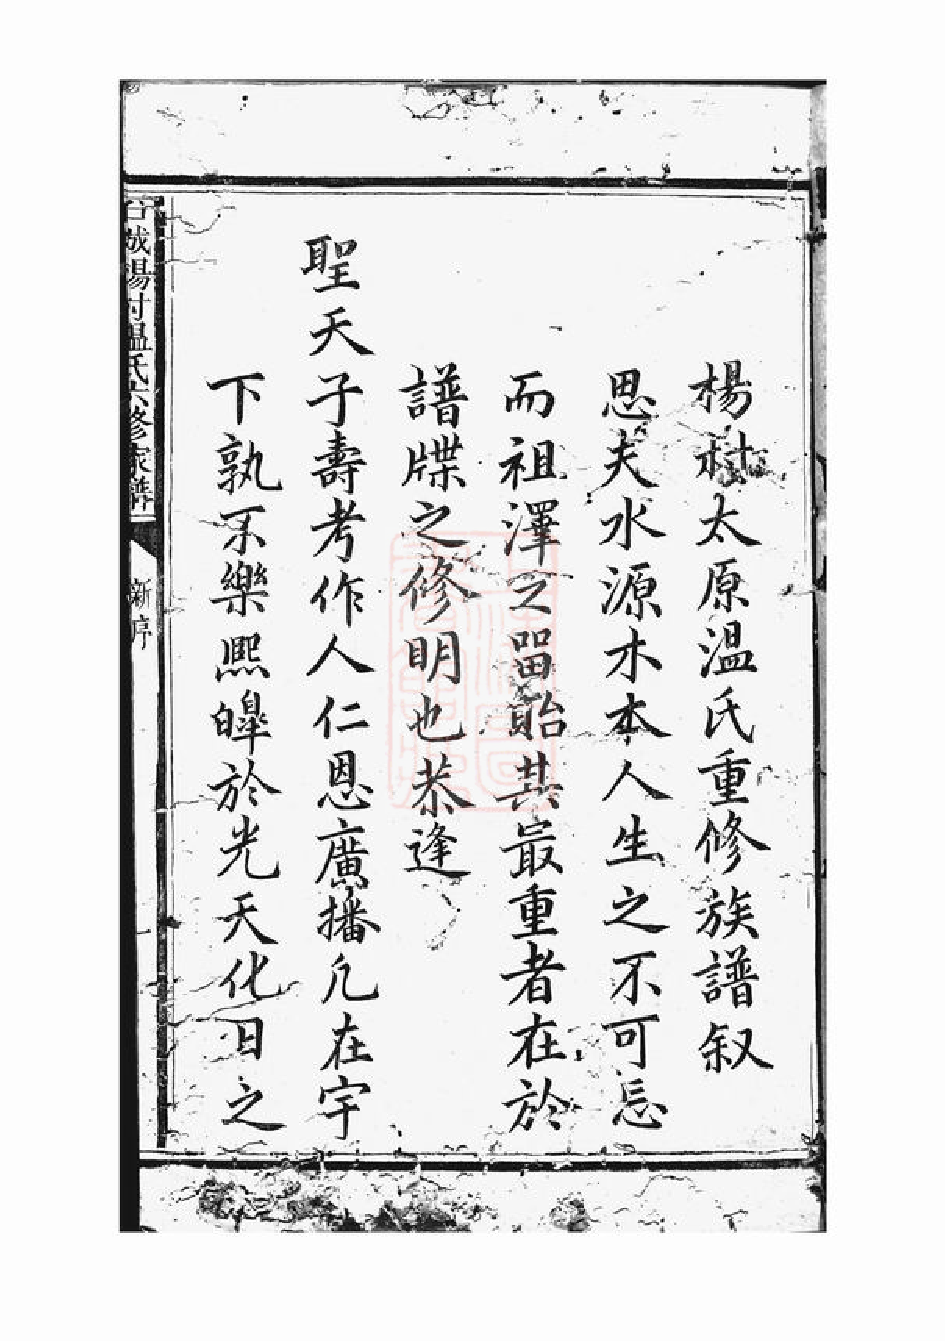 楊村太原温氏重修族譜叙
思夫水源木本人生之不可忘
而祖澤之畱貽其最重者在於
譜牒之修明也恭逢
聖天子壽考作人仁恩廣播凡在宇
下孰不樂熈皥於光天化日之
城湯村温氏六修家譜
新序